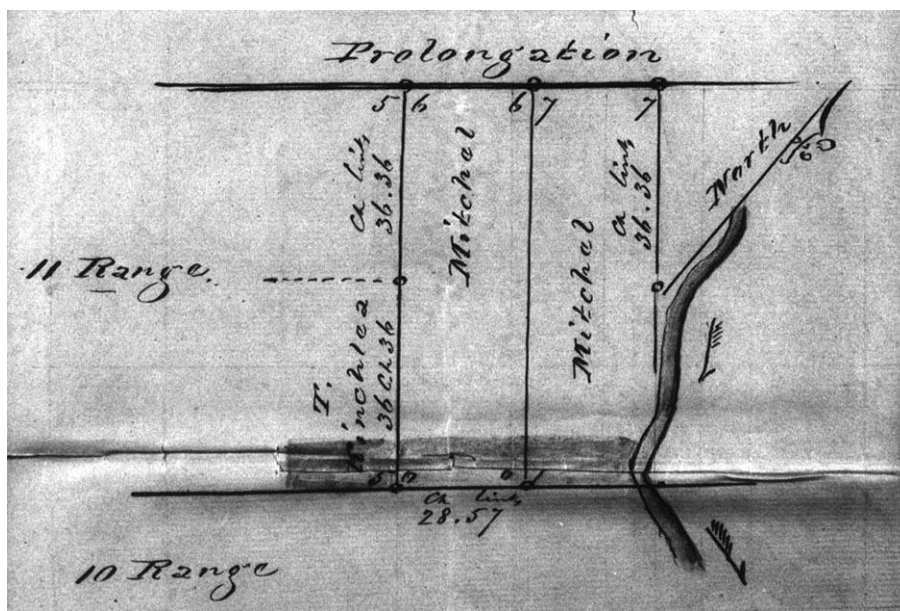 Prolongation
5 6
6 7
7
Ch links
36.36
Mitchal
Mitchal
Ch links
36.36
North
11 Range.
T.
36 Ch 36
Ch links
28.57
10 Range